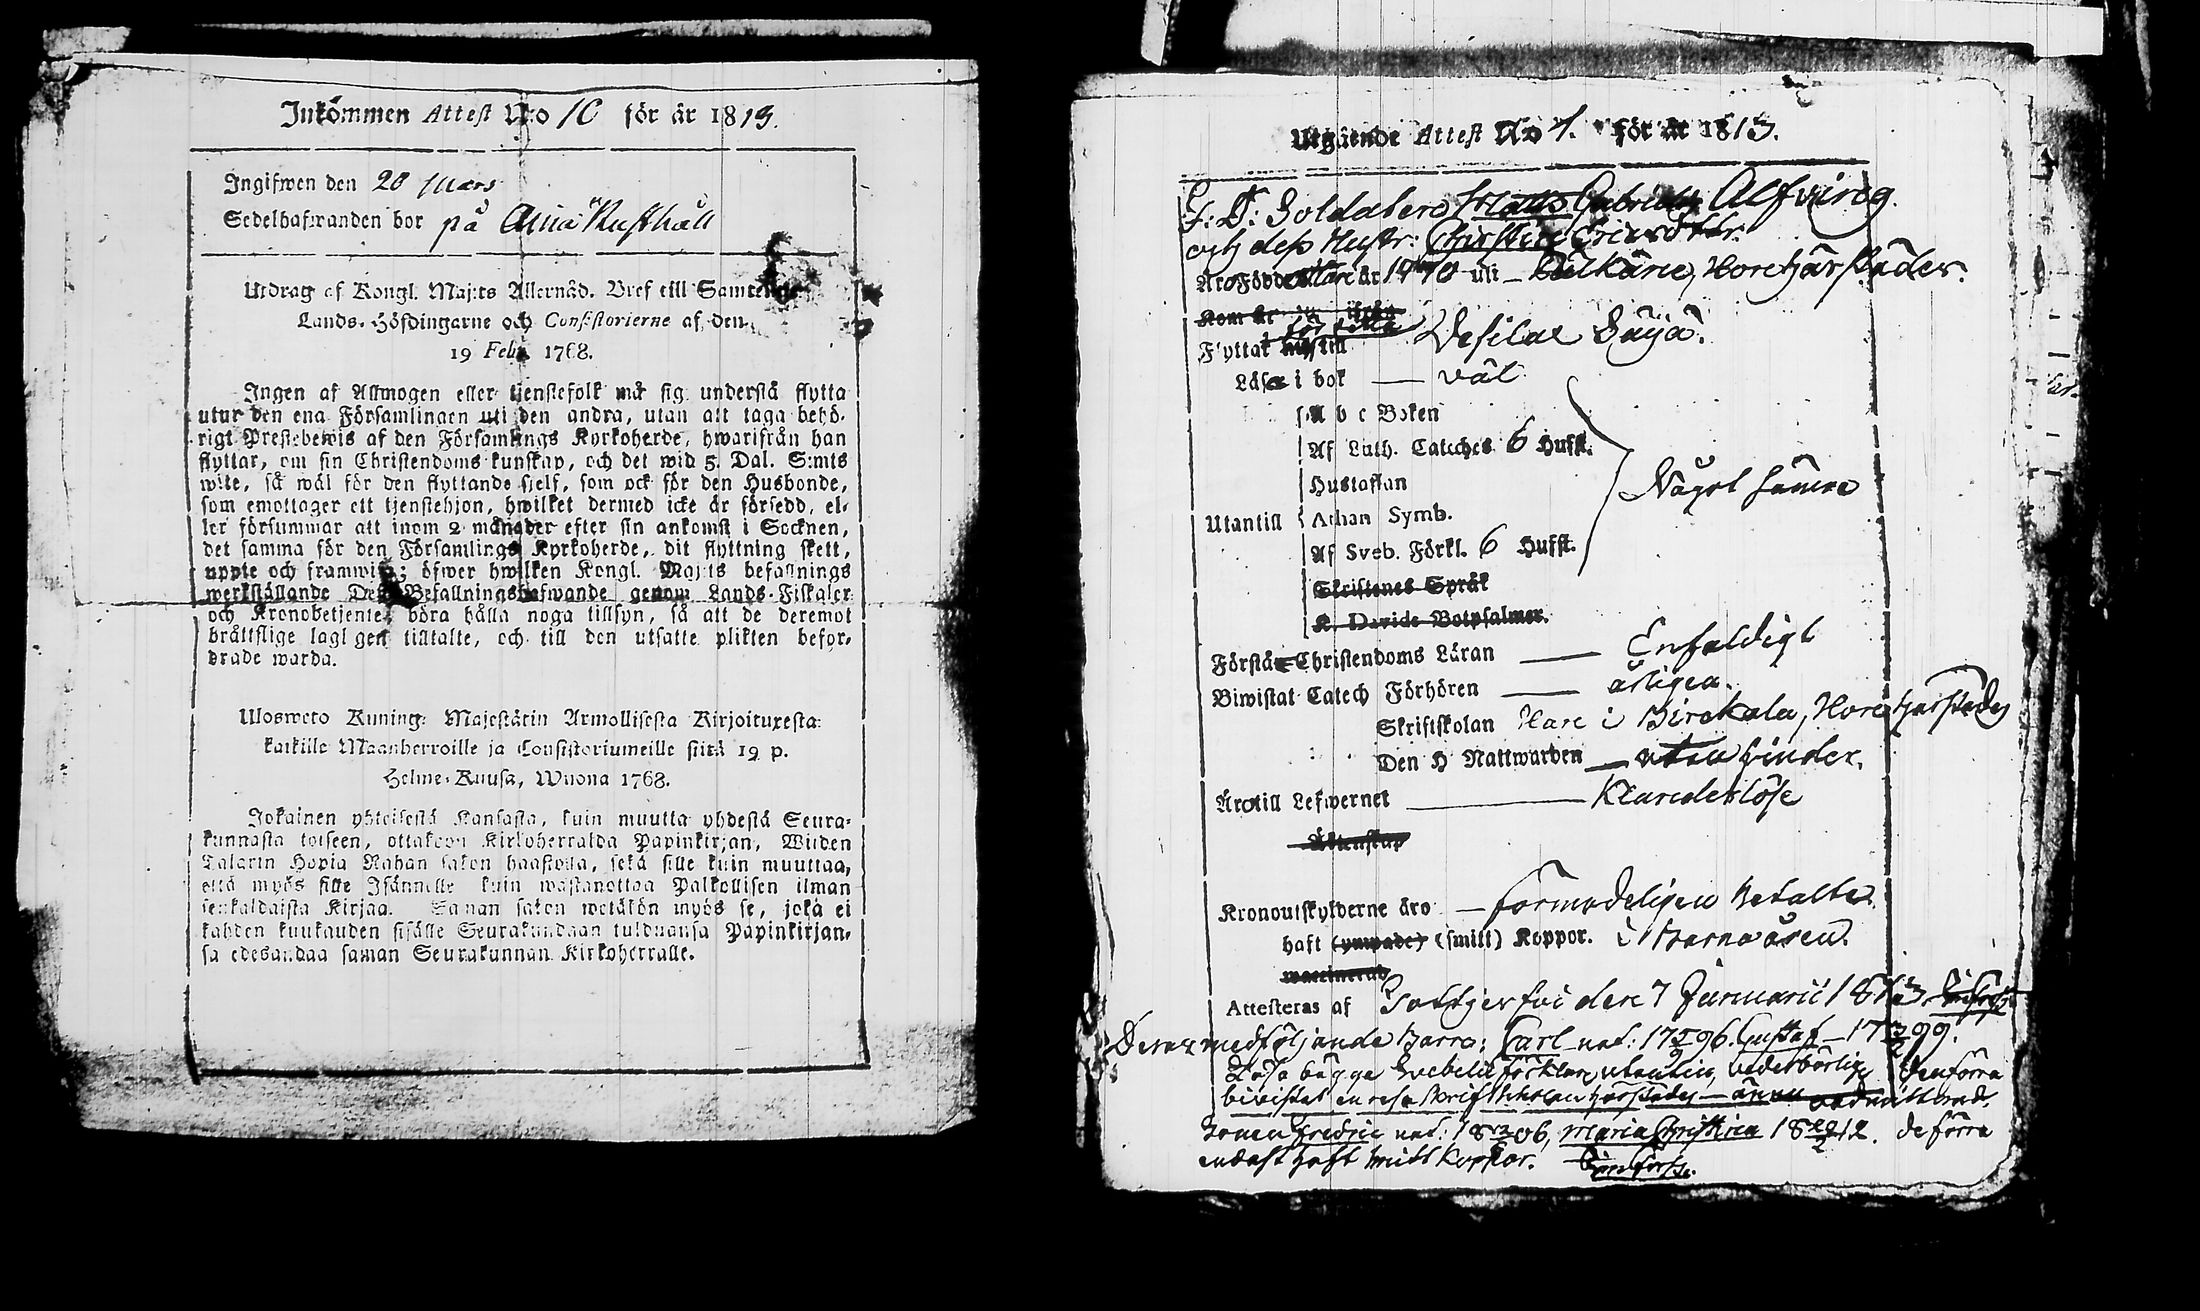 Inkommen Attest No 10 för år 1813.
Ingifwen den 20 Mars
Sedelhafwanden bor på Rusthåll
Utdrag af Kongl. Maj:ts Allernåd. Bref till Samtelige
Lands-Höfdingarne och Consistorierne af den
19 Febr. 1768.
Ingen af Allmogen eller tjenstefolk må sig understå flytta
utur den ena Församlingen uti den andra, utan att taga behö-
rigt Prestebewis af den Församlings Kyrkoherde, hwarifrån han
flyttar, om sin Christendoms kunskap, och det wid 5. Dal. S:mts
wite, så wäl för den flyttande sjelf, som ock för den Husbonde,
som emottager ett tjenstehjon, hwilket dermed icke är försedd, el-
ler försummar att inom 2 månader efter sin ankomst i Socknen,
det samma för den Församlings Kyrkoherde, dit flyttning skett,
uppte och framwisa; öfwer hwilken Kongl. Maj:ts befallnings
werkställande Dess Befallningshafwande genom Lands-Fiskaler
och Kronobetjente, böra hålla noga tillsyn, så att de deremot
bråttslige lagligen tilltalte, och till den utsatte plikten befor-
drade warda.
Ulosweto Kuning: Majestätin Armollisesta Kirjoituxesta:
kaikille Maanherroille ja Consistoriumeille siitä 19 p.
Helme-Kuusa, Wuona 1768.
Jokainen yhteisestä Kansasta, kuin muutta yhdestä Seura-
kunnasta toiseen, ottakoon Kirkoherralda Papinkirjan, Wiiden
Talarin Hopia Rahan sakon haastolla, sekä sille kuin muuttaa,
että myös sille Isännelle kuin wastanottaa Palkollisen ilman
senkaldaista Kirjaa. Saman sakon wetäkön myös se, joka ei
kahden kuukauden sisälle Seurakundaan tulduansa Papinkirjan-
sa edesandaa saman Seurakunnan Kirkoherralle.
Utgående Attest No 1. för år 1813.
F: D: Soldaten Matts Gabrielss Alfvireg.
och dess Hustr: Christina Ericsdttr.
Äro Födde år 1770 uti – Birkala, Harjankader.
Kom
Flyttat till Vesilax
Läsa i bok — väl
A b c Boken
Af Luth. Cateches 6 Hufst.
Hustaflan
Utantill Athan Symb. Något sämre
Af Sveb. Förkl. 6 Hufst.
Skriftenes Språk
K. Davids Botpsalmer.
Förstå Christendoms Läran — Enfaldigt
Biwistat Catech Förhören — årligen.
Skriftskolan i Birckala,
Den H Nattwarden — utan hinder.
Äro till Lefwernet — Klanderlöse
Äktenskap
Kronoutskylderne äro — förmodeligen betalte.
haft (ympade) (smitt) Koppor. i Barnaåren.
waccinerad
Attesteras af den 7 Januarii 1813
Deras medföljande Barn: Carl nat: 17 96. Gustaf – 17 99.
Läsa bägge Svebelii förklar, utantill, vederbörlig den förra
Fredric nat: 18 06, Maria Christina 18 12. de förra
endast haft smitt koppor.